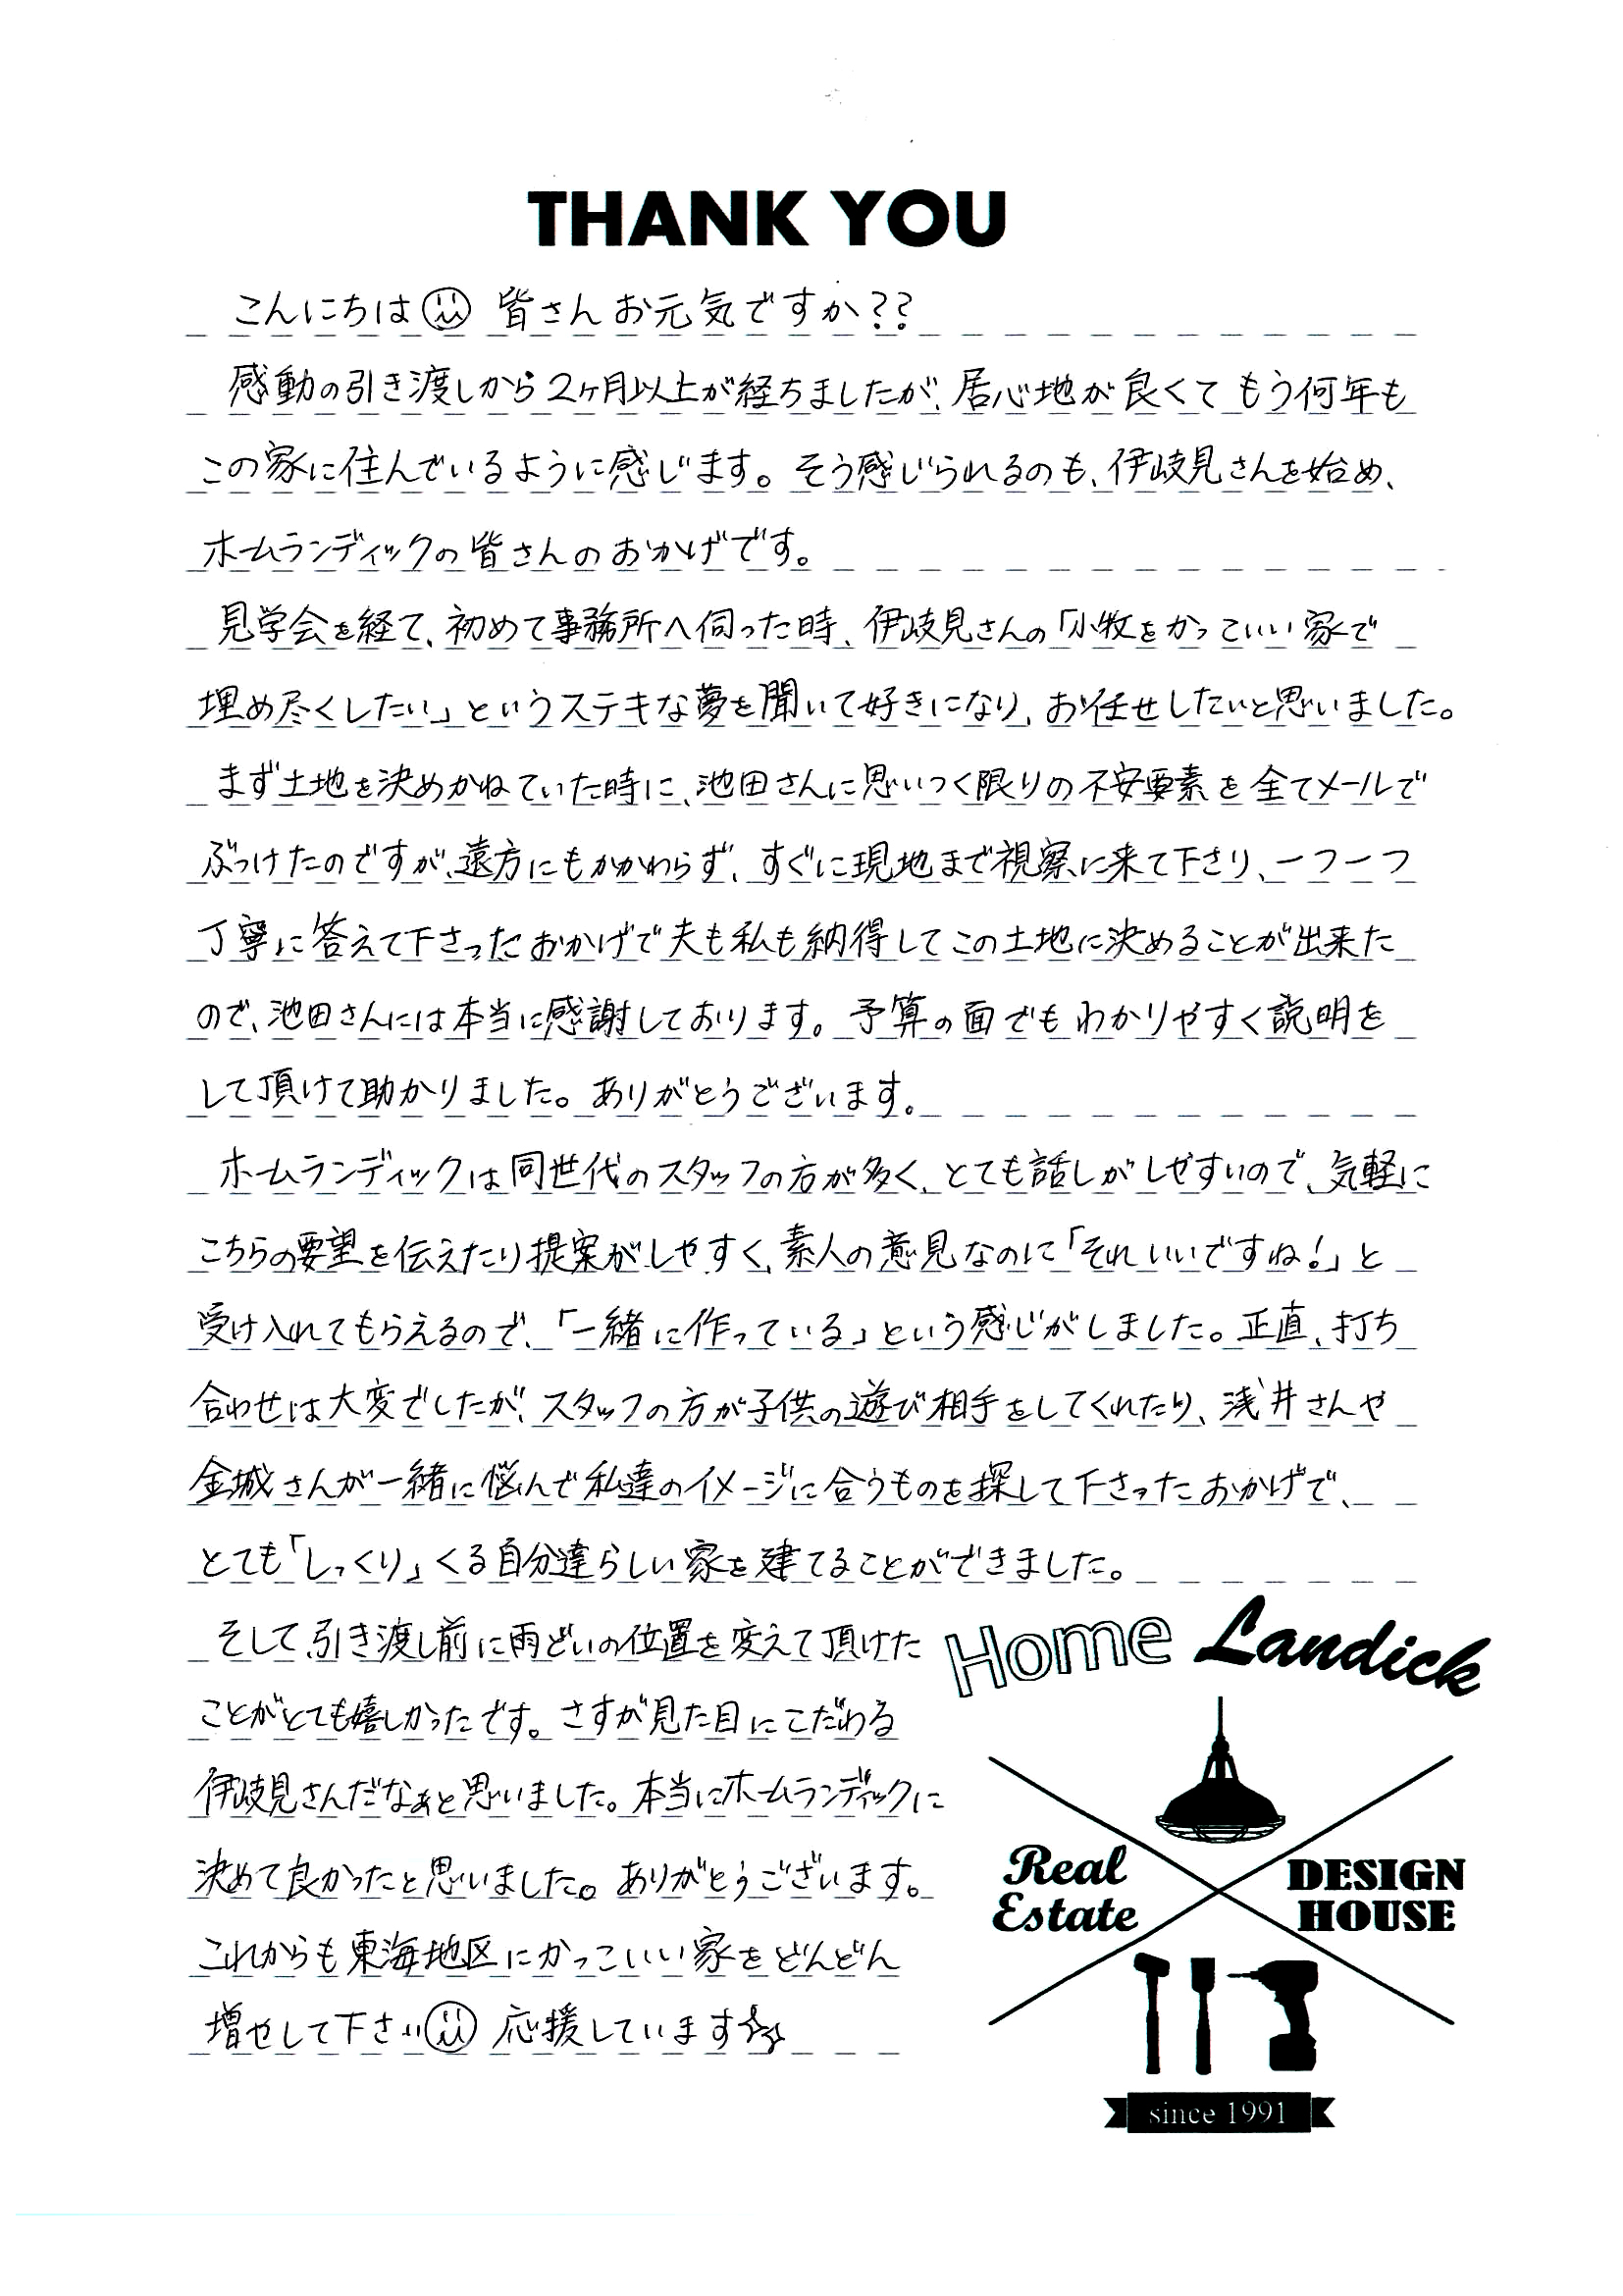 THANK YOU
こんにちは 皆さんお元気ですか??
感動の引き渡しから2ヶ月以上が経ちましたが、居心地が良くてもう何年も
この家に住んでいるように感じます。そう感じられるのも、伊岐見さんを始め、
ホームランディックの皆さんのおかげです。
見学会を経て、初めて事務所へ伺った時、伊岐見さんの「小牧をかっこいい家で
埋め尽くしたい」というステキな夢を聞いて好きになり、お任せしたいと思いました。
まず土地を決めかねていた時に、池田さんに思いつく限りの不安要素を全てメールで
ぶつけたのですが、遠方にもかかわらず、すぐに現地まで視察に来て下さり、一つ一つ
丁寧に答えて下さったおかげで夫も私も納得してこの土地に決めることが出来た
ので、池田さんには本当に感謝しております。予算の面でもわかりやすく説明を
して頂けて助かりました。ありがとうございます。
ホームランディックは同世代のスタッフの方が多く、とても話しがしやすいので、気軽に
こちらの要望を伝えたり提案がしやすく、素人の意見なのに「それいいですね!」と
受け入れてもらえるので、「一緒に作っている」という感じがしました。正直、打ち
合わせは大変でしたが、スタッフの方が子供の遊び相手をしてくれたり、浅井さんや
金城さんが一緒に悩んで私達のイメージに合うものを探して下さったおかげで、
とても「しっくり」くる自分達らしい家を建てることができました。
そして、引き渡し前に雨どいの位置を変えて頂けた
ことがとても嬉しかったです。さすが見た目にこだわる
伊岐見さんだなぁと思いました。本当にホームランディックに
決めて良かったと思いました。ありがとうございます。
これからも東海地区にかっこいい家をどんどん
増やして下さい 応援しています☆
Home Landick
Real
Estate
DESIGN
HOUSE
since 1991